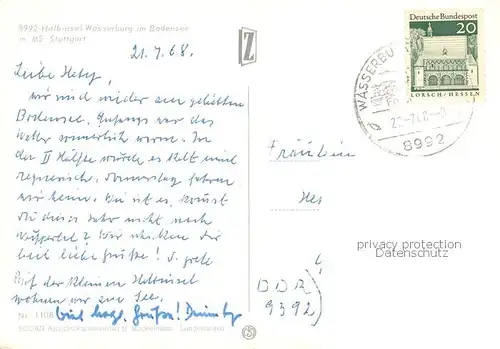 8992 Halbinsel Wasserburg im Bodensee
m. MS Stuttgart
21.7.68.
Liebe
wir sind wieder am geliebten
Bodensee. Anfangs war das
Wetter sommerlich warm. In
der II Hälfte wurde es kalt und
regnerisch. Donnerstag fahren
wir heim. Wie ist es, kommst
du dieses Jahr nicht nach
Wuppertal? Wir schicken dir
viele liebe Grüße!
Auf der kleinen Halbinsel
wohnen wir am See.
Nr. 1108
viel
Z
Deutsche Bundespost
20
LORSCH/HESSEN
WASSERBU
8992
Fräulein
DDR
9392
privacy protection
DATENSCHUTZ